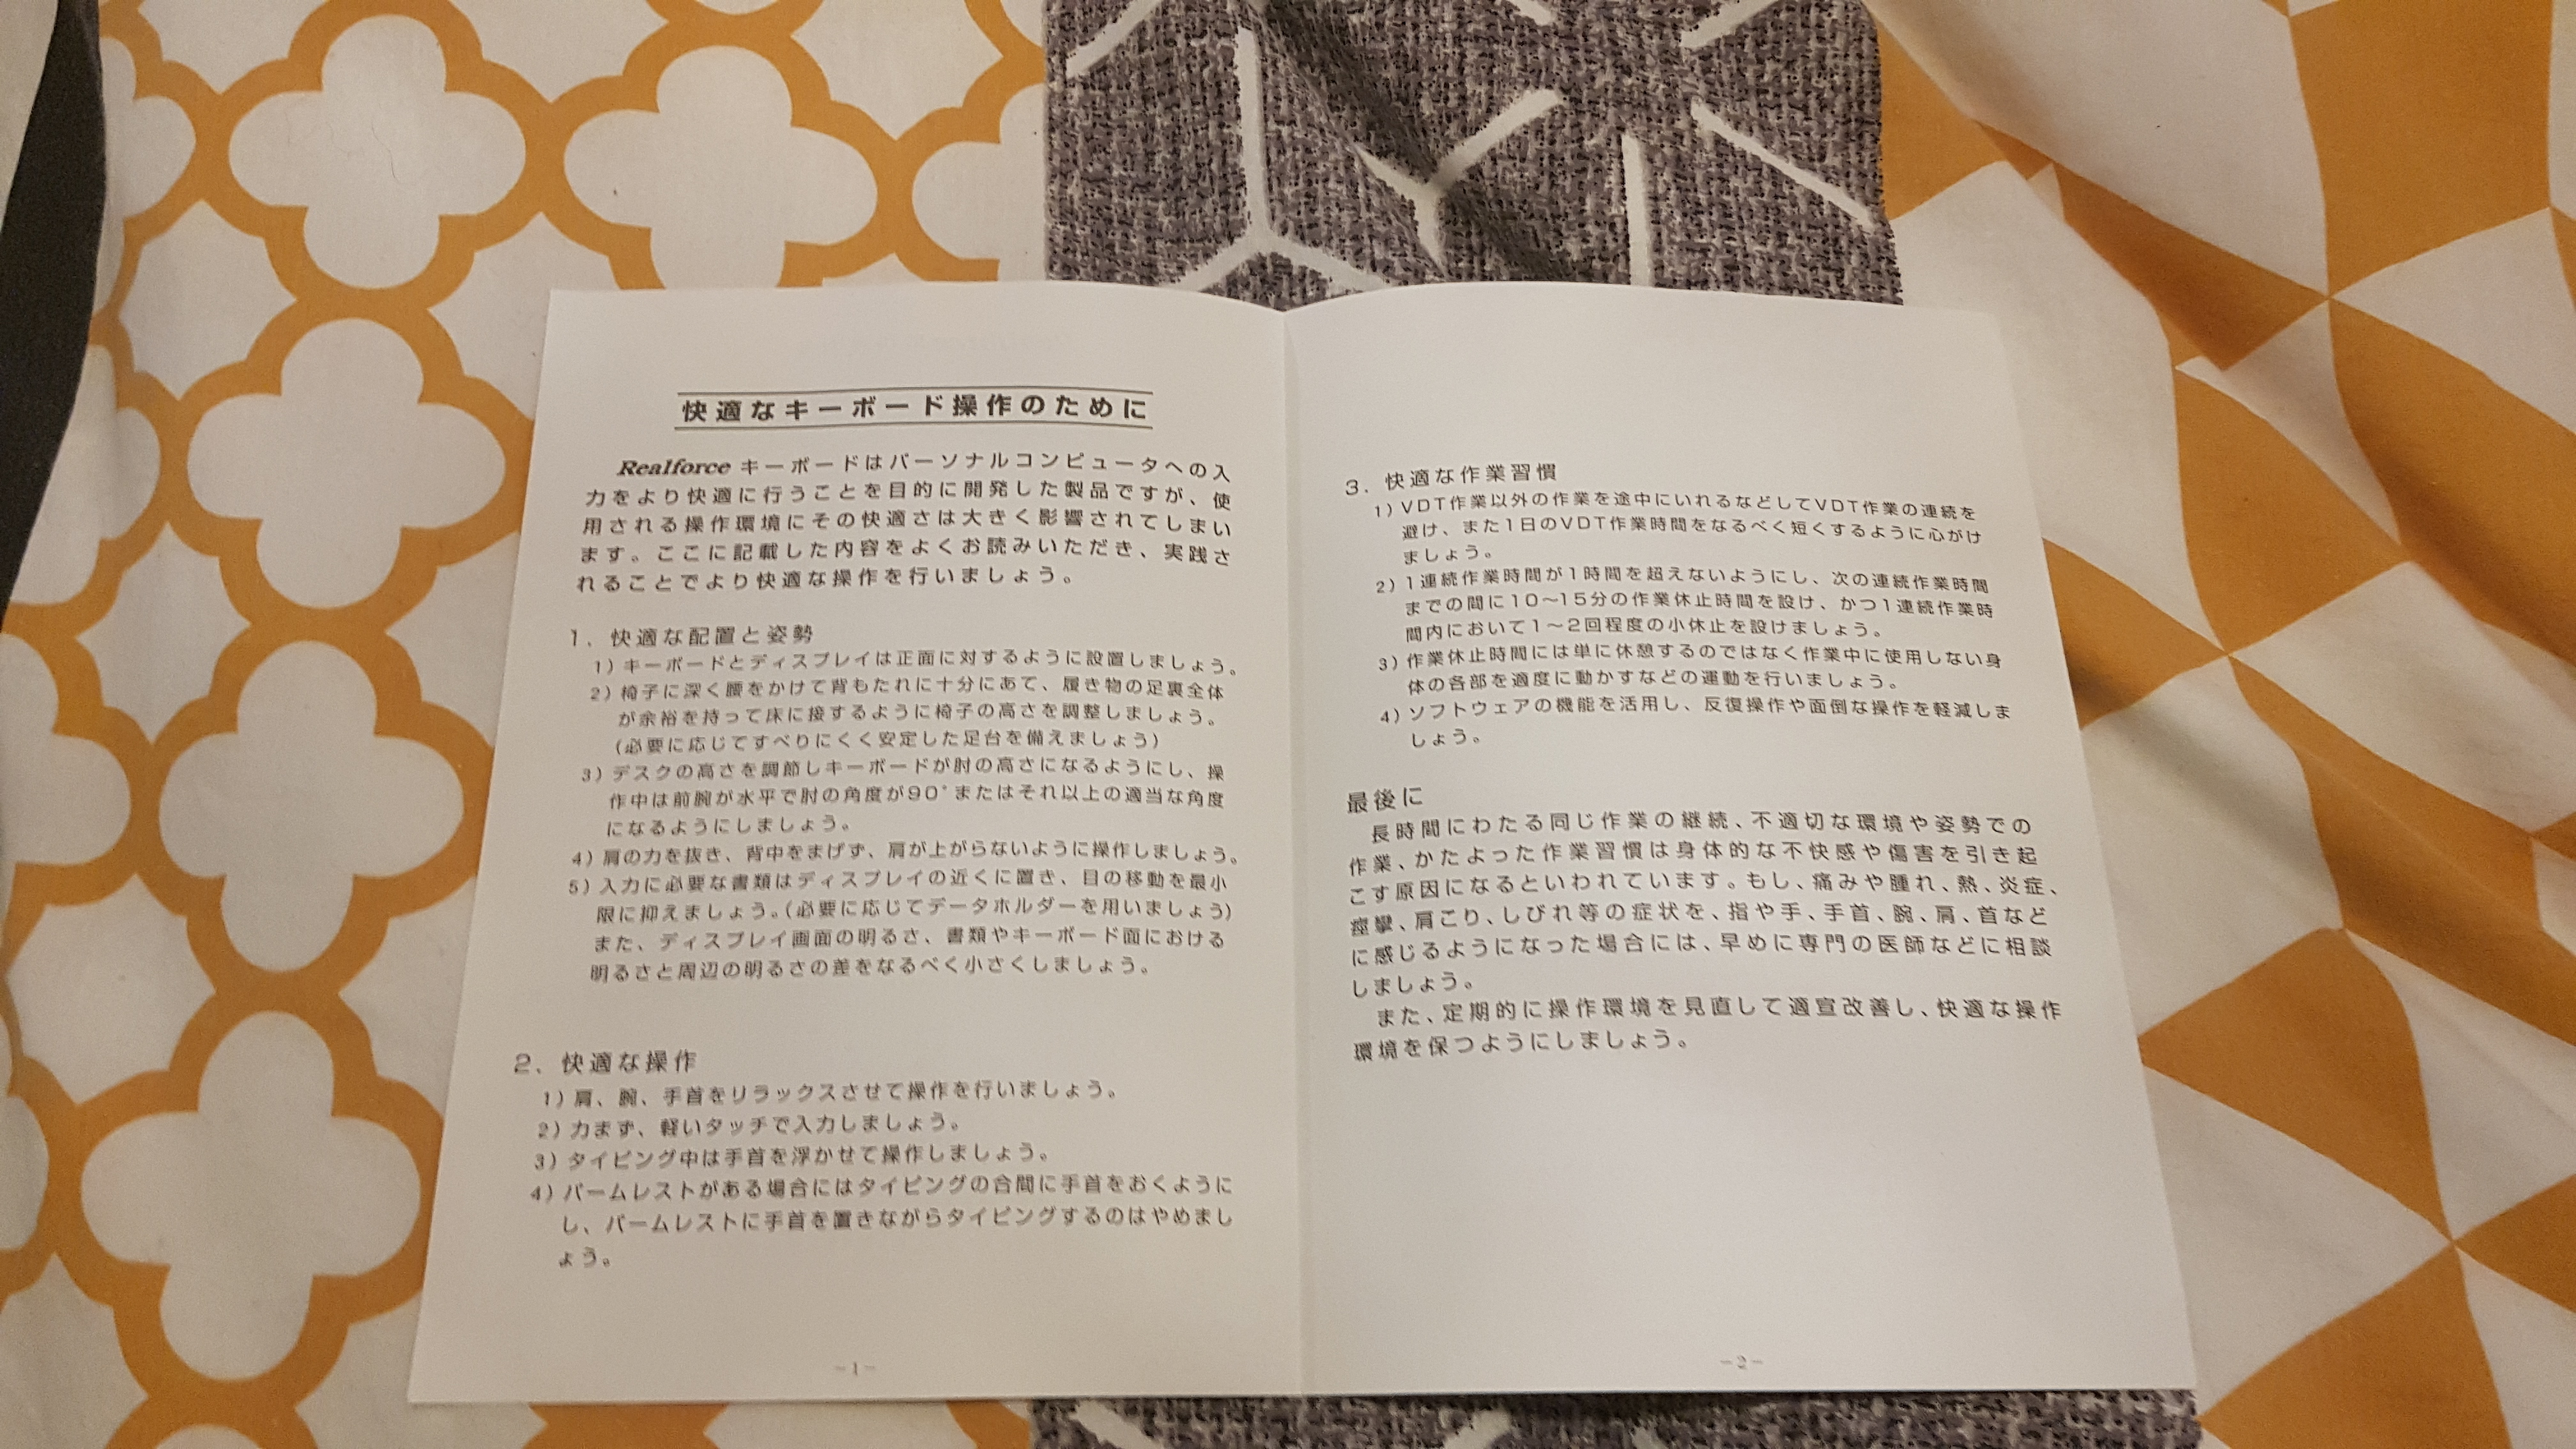 快適なキーボード操作のために
Realforce キーボードはパーソナルコンピュータへの入
力をより快適に行うことを目的に開発した製品ですが、使
用される操作環境にその快適さは大きく影響されてしまい
ます。ここに記載した内容をよくお読みいただき、実践さ
れることでより快適な操作を行いましょう。
1．快適な配置と姿勢
1）キーボードとディスプレイは正面に対するように設置しましょう。
2）椅子に深く腰をかけて背もたれに十分にあて、履き物の足裏全体
が余裕を持って床に接するように椅子の高さを調整しましょう。
（必要に応じてすべりにくく安定した足台を備えましょう）
3）デスクの高さを調節しキーボードが肘の高さになるようにし、操
作中は前腕が水平で肘の角度が90°またはそれ以上の適当な角度
になるようにしましょう。
4）肩の力を抜き、背中をまげず、肩が上がらないように操作しましょう。
5）入力に必要な書類はディスプレイの近くに置き、目の移動を最小
限に抑えましょう。（必要に応じてデータホルダーを用いましょう）
また、ディスプレイ画面の明るさ、書類やキーボード面における
明るさと周辺の明るさの差をなるべく小さくしましょう。
2．快適な操作
1）肩、腕、手首をリラックスさせて操作を行いましょう。
2）力まず、軽いタッチで入力しましょう。
3）タイピング中は手首を浮かせて操作しましょう。
4）パームレストがある場合にはタイピングの合間に手首をおくように
し、パームレストに手首を置きながらタイピングするのはやめまし
ょう。
－1－
3．快適な作業習慣
1）VDT作業以外の作業を途中にいれるなどしてVDT作業の連続を
避け、また1日のVDT作業時間をなるべく短くするように心がけ
ましょう。
2）1連続作業時間が1時間を超えないようにし、次の連続作業時間
までの間に10〜15分の作業休止時間を設け、かつ1連続作業時
間内において1〜2回程度の小休止を設けましょう。
3）作業休止時間には単に休憩するのではなく作業中に使用しない身
体の各部を適度に動かすなどの運動を行いましょう。
4）ソフトウェアの機能を活用し、反復操作や面倒な操作を軽減しま
しょう。
最後に
長時間にわたる同じ作業の継続、不適切な環境や姿勢での
作業、かたよった作業習慣は身体的な不快感や傷害を引き起
こす原因になるといわれています。もし、痛みや腫れ、熱、炎症、
痙攣、肩こり、しびれ等の症状を、指や手、手首、腕、肩、首など
に感じるようになった場合には、早めに専門の医師などに相談
しましょう。
また、定期的に操作環境を見直して適宣改善し、快適な操作
環境を保つようにしましょう。
－2－